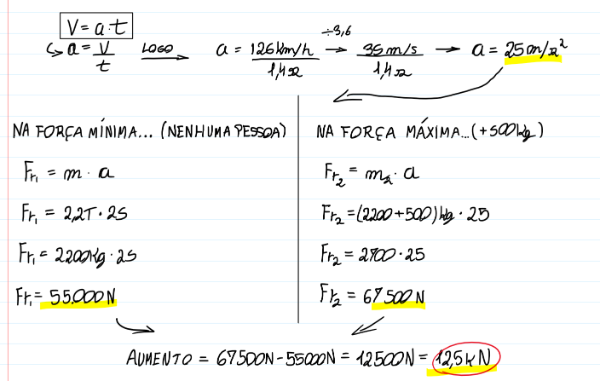 V = a · t
↳ a = V/t LOGO a = 126km/h / 1,4s ÷3,6 → 35m/s / 1,4s → a = 25m/s²
NA FORÇA MÍNIMA... (NENHUMA PESSOA)
Fr₁ = m · a
Fr₁ = 2,2T · 25
Fr₁ = 2200Kg · 25
Fr₁ = 55.000N
NA FORÇA MÁXIMA...(+500kg)
Fr₂ = m₂ · a
Fr₂ = (2200+500)kg · 25
Fr₂ = 2700 · 25
Fr₂ = 67500N
AUMENTO = 67500N - 55000N = 12500N = 12,5kN